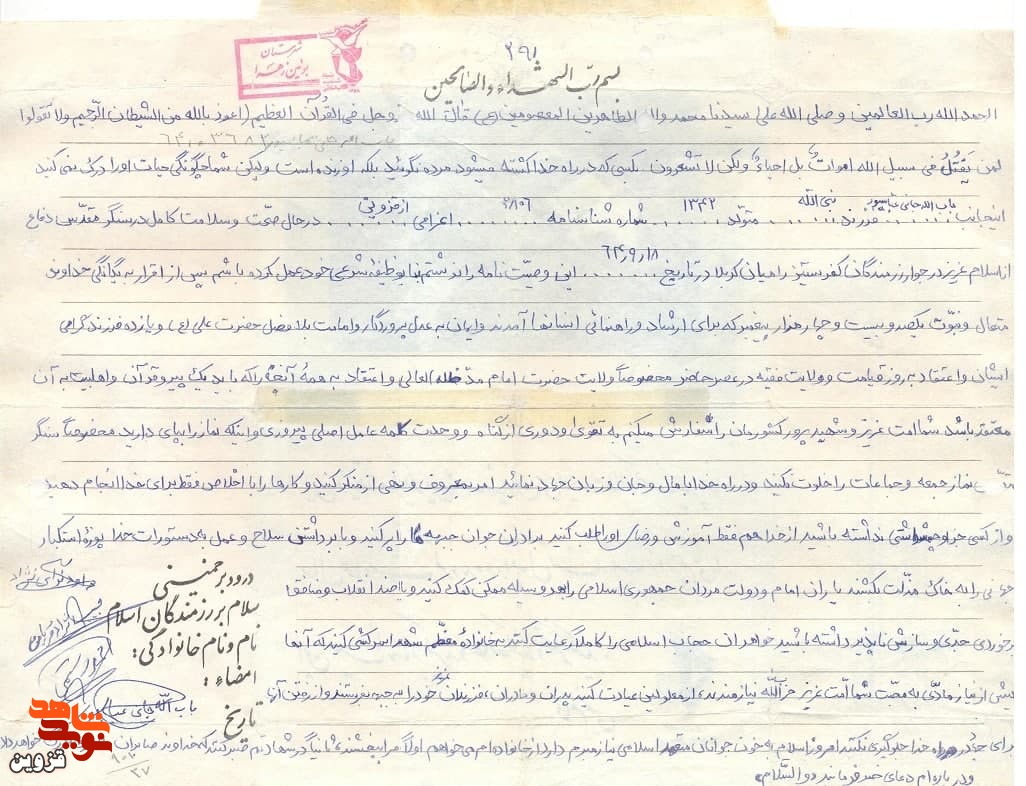 ۲۹۱
شهرستان
بوئین زهرا
بسم ربّ الشهداء والصالحین
الحمد الله رب العالمین وصلی الله علی سیدنا محمد والا الطاهرین المعصومین قال الله عزوجل فی القرآن العظیم (اعوذ بالله من الشیطان الرجیم ولا تقولوا
لمن یُقتَلُ فی سبیل الله امواتٌ بل احیاءٌ ولکن لا تشعرون بکسی که در راه خدا کشته میشود مرده نگوئید بلکه او زنده است ولیکن شما چگونگی حیات او را درک نمی کنید
اینجانب باب الله حاجی عباسپور فرزند نبی الله متولد ۱۳۴۲ شماره شناسنامه ۲۸۰۶ اعزامی از قزوین در حال صحّت وسلامت کامل در سنگر مقدّس دفاع
از اسلام عزیز در جوار رزمندگان کفرستیز و در میان کربلا در تاریخ ۶۴٫۹٫۱۸ این وصیّت نامه را نوشتم تا بوظیفه شرعی خود عمل کرده باشم پس از اقرار به یگانگی خداوند
متعال و نبوّت یکصد و بیست و چهار هزار پیغمبر که برای ارشاد و راهنمائی انسانها آمدند وایمان به عدل پروردگار وامامت بلافصل حضرت علی (ع) و یازده فرزند گرامی
ایشان واعتقاد به روز قیامت و ولایت فقیه در عصر حاضر مخصوصاً ولایت حضرت امام مدّ ظله العالی واعتقاد به همهٔ آنچه را که باید یک پیرو قرآن واهلبیت به آن
معتقد باشد شما امت عزیز و شهید پرور کشورمان را سفارش میکنم به تقوی و دوری از گناه و وحدت کلمه عامل اصلی پیروزی و اینکه نماز را بپای دارید مخصوصاً سنگر
نماز جمعه و جماعات را خلوت نکنید و در راه خدا با مال و جان و زبان جهاد نمائید امر بمعروف و نهی از منکر کنید و کارها را با اخلاص فقط برای خدا انجام دهید
و از کسی جز او چشمداشتی نداشته باشید از خدا هم فقط آمرزش و رضای او را طلب کنید برادران جوان جبهه ها را پر کنید و با برداشتن سلاح و عمل به دستورات خدا پوزهٔ استکبار
جهانی را به خاک مذلّت بکشند یاران امام و دولت مردان جمهوری اسلامی را بهر وسیله ممکن کمک کنید و با ضد انقلاب و منافق
برخوردی جدّی و سازش ناپذیر داشته باشید خواهران حجاب اسلامی را کاملاً رعایت کنند به خانوادهٔ معظّم شهدا سرکشی کنید که آنها
بیش از نیاز مادّی به محبّت شما امّت عزیز حزب الله نیازمندند از معلولین عیادت کنید پدران و مادران، فرزندان خود را به جبهه بفرستند و از رفتن آنها
برای جهاد در راه خدا جلوگیری نکنند امروز اسلام به خون جوانان متعهد اسلامی نیاز مبرم دارد از خانواده ام می خواهم اولاً مرا ببخشند ثانیاً در شهادتم صبر کنند که خداوند صابران
و در باره ام دعای خیر فرمایند والسّلام
درود بر خمینی
سلام بر رزمندگان اسلام
نام و نام خانوادگی:
امضاء:
باب الله حاجی عباسپور
تاریخ
نوید شاهد
قزوین